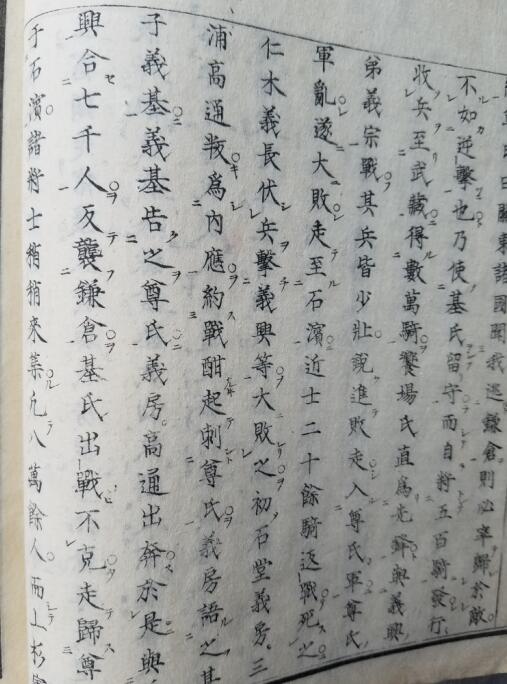 關東諸國聞我逃鎌倉則必率歸於敵
不如逆擊也乃使基氏留守而自將五百騎發行
收兵至武藏得數萬騎饗場氏直爲先鋒與義興
弟義宗戰其兵皆少壯銳進敗走入尊氏軍尊氏
軍亂遂大敗走至石濱近士二十餘騎返戰死之
仁木義長伏兵擊義興等大敗之初石堂義房三
浦高通叛爲內應約戰酣起刺尊氏義房語之其
子義基義基告之尊氏義房高通出奔於是與
興合七千人反襲鎌倉基氏出戰不克走歸尊
于石濱諸將士稍稍來萃凡八萬餘人而上杉憲